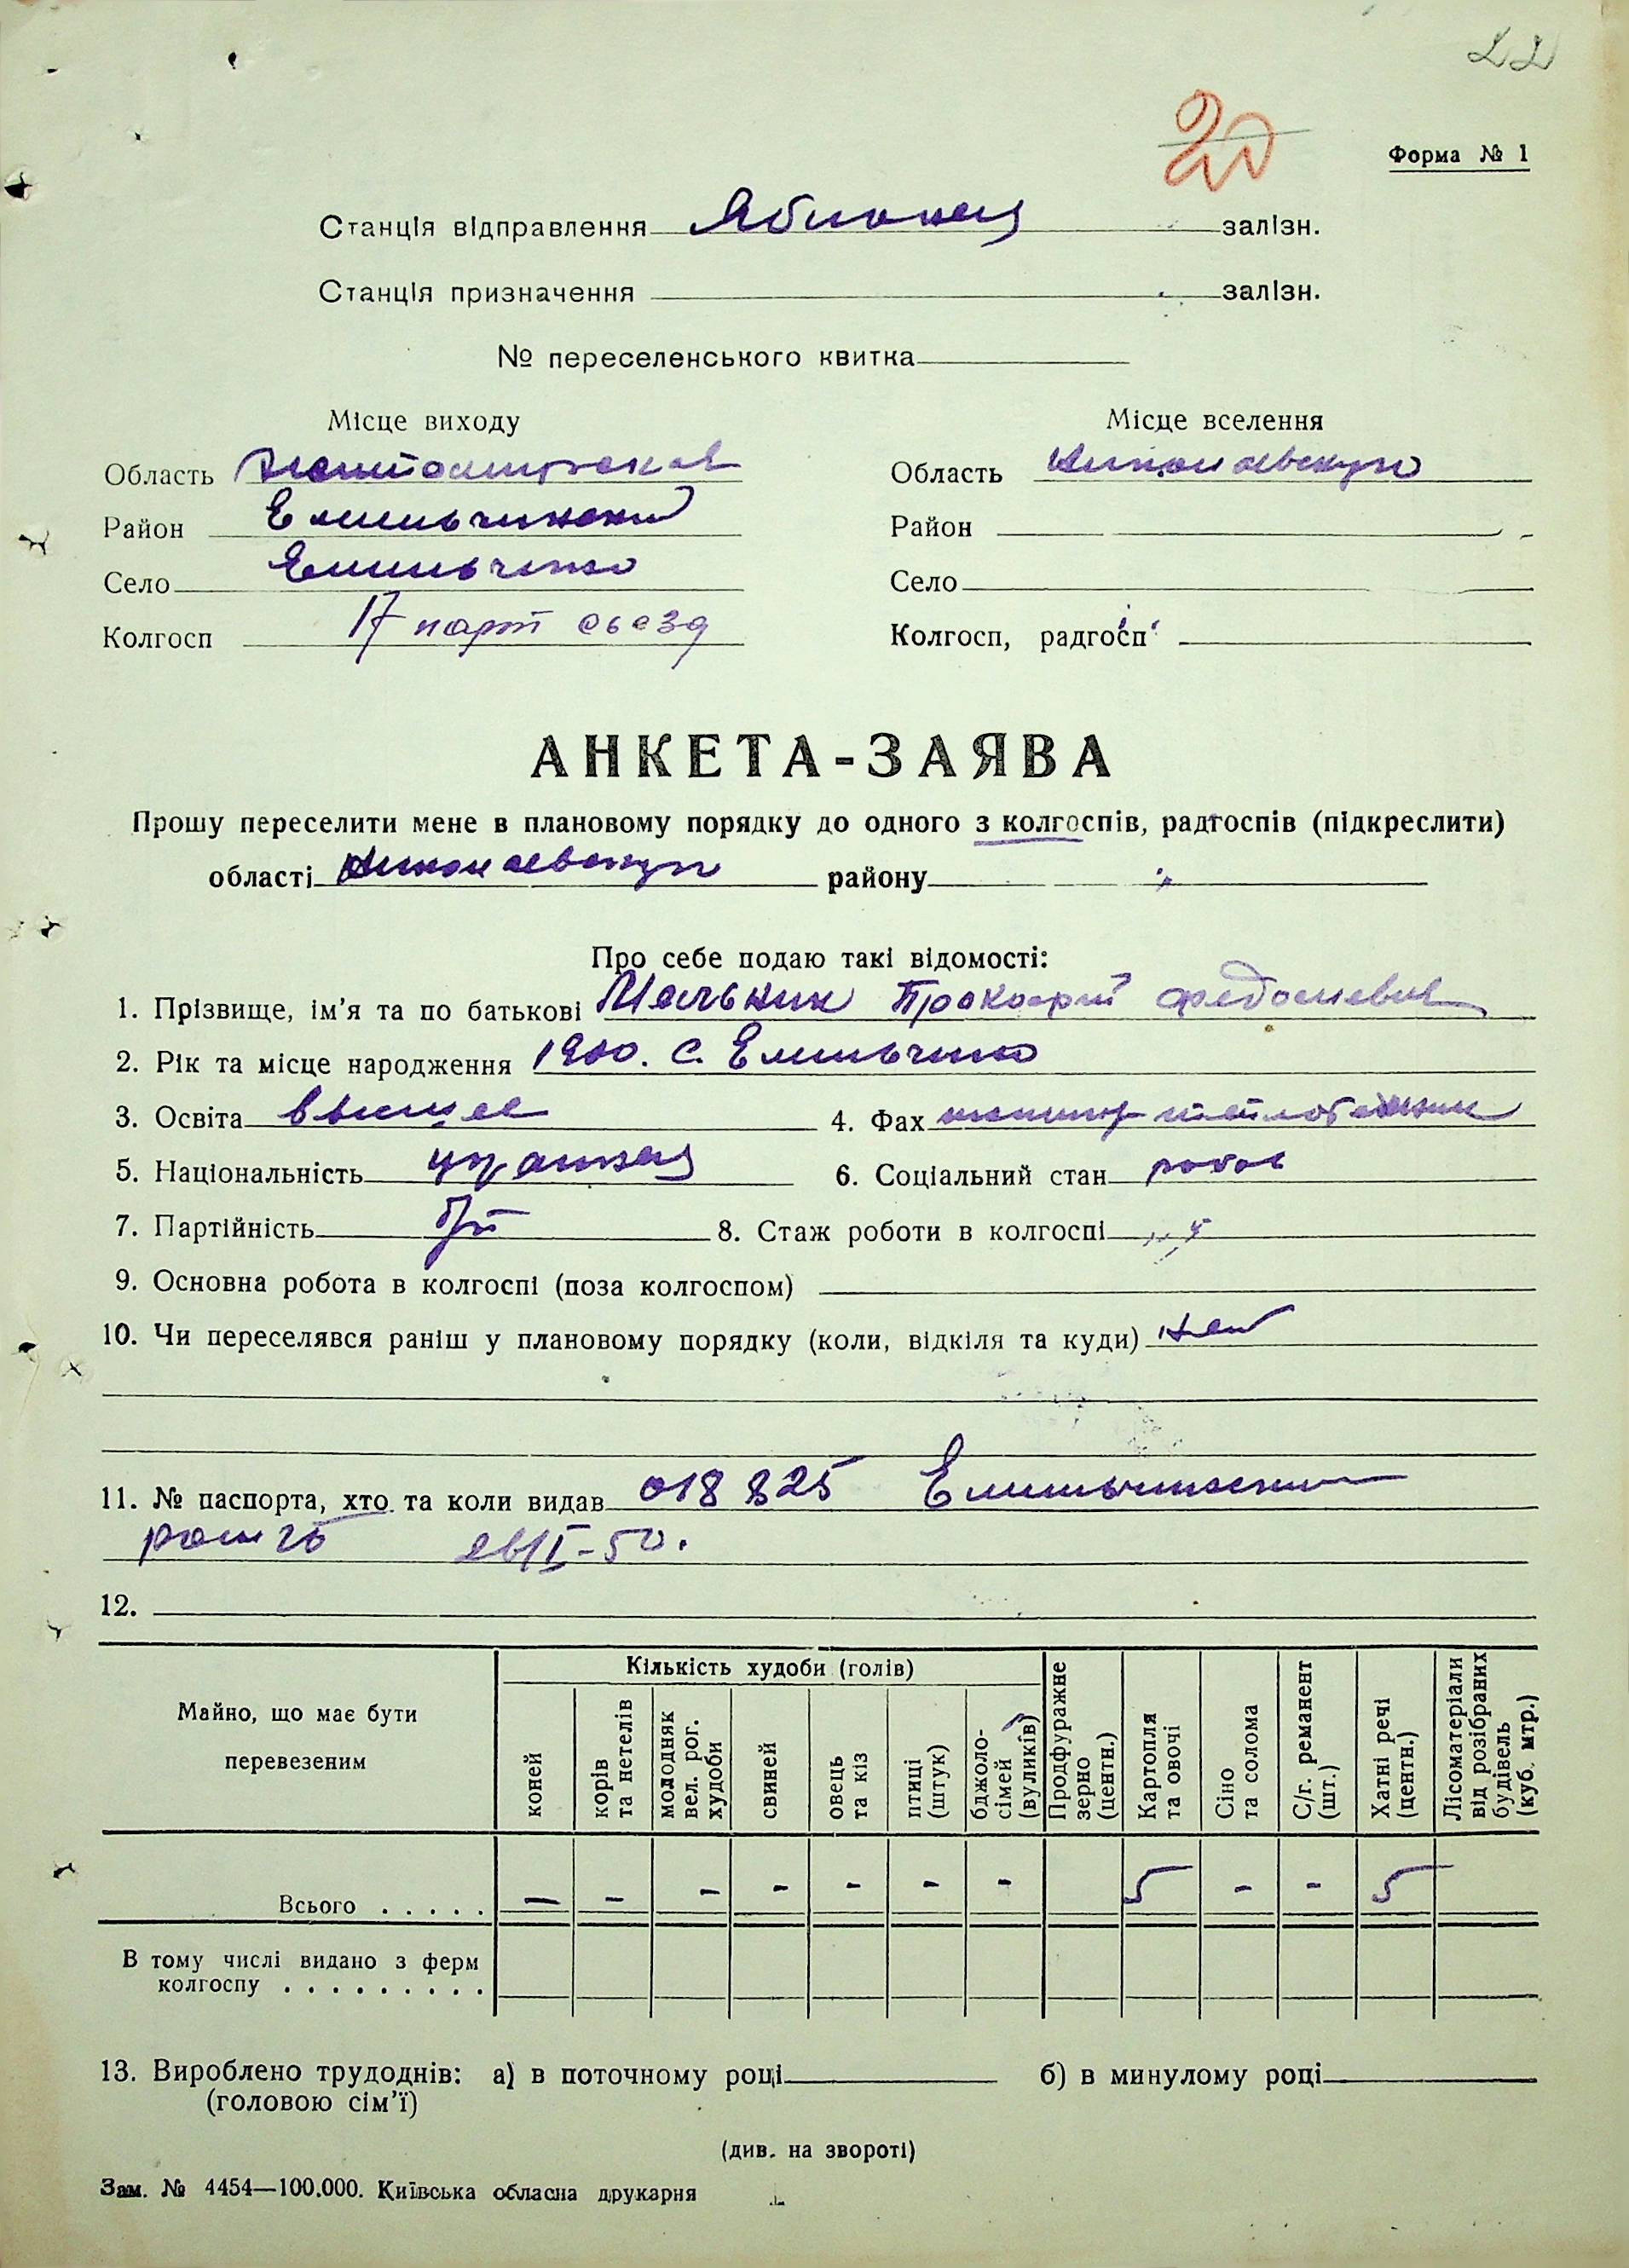 22
20
Форма № 1
Станція відправлення Яблонец залізн.
Станція призначення залізн.
№ переселенського квитка
Місце виходу Місце вселення
Область Житомирская Область Николаевскую
Район Емильчинский Район
Село Емильчено Село
Колгосп 17 парт сьезд Колгосп, радгосп
АНКЕТА-ЗАЯВА
Прошу переселити мене в плановому порядку до одного з колгоспів, радгоспів (підкреслити)
області Николаевскую району "
Про себе подаю такі відомості:
1. Прізвище, ім'я та по батькові Мельник Прокофий Федосиевич
2. Рік та місце народження 1900. с. Емильчено
3. Освіта высшее 4. Фах
5. Національність украинец 6. Соціальний стан рабоч
7. Партійність б/п 8. Стаж роботи в колгоспі
9. Основна робота в колгоспі (поза колгоспом)
10. Чи переселявся раніш у плановому порядку (коли, відкіля та куди) нет
11. № паспорта, хто та коли видав 018825 Емильчинским
50.
12.
Майно, що має бути перевезеним
Кількість худоби (голів)
коней
корів та нетелів
молодняк вел. рог. худоби
свиней
овець та кіз
птиці (штук)
бджоло-сімей (вуликів)
Продфуражне зерно (центн.)
Картопля та овочі
Сіно та солома
С/г. реманент (шт.)
Хатні речі (центн.)
Лісоматеріали від розібраних будівель (куб. мтр.)
Всього . . . . . — – – – – – – 5 – – 5
В тому числі видано з ферм
колгоспу . . . . . . . . .
13. Вироблено трудоднів: а) в поточному році б) в минулому році
(головою сім'ї)
(див. на звороті)
Зам. № 4454—100.000. Київська обласна друкарня